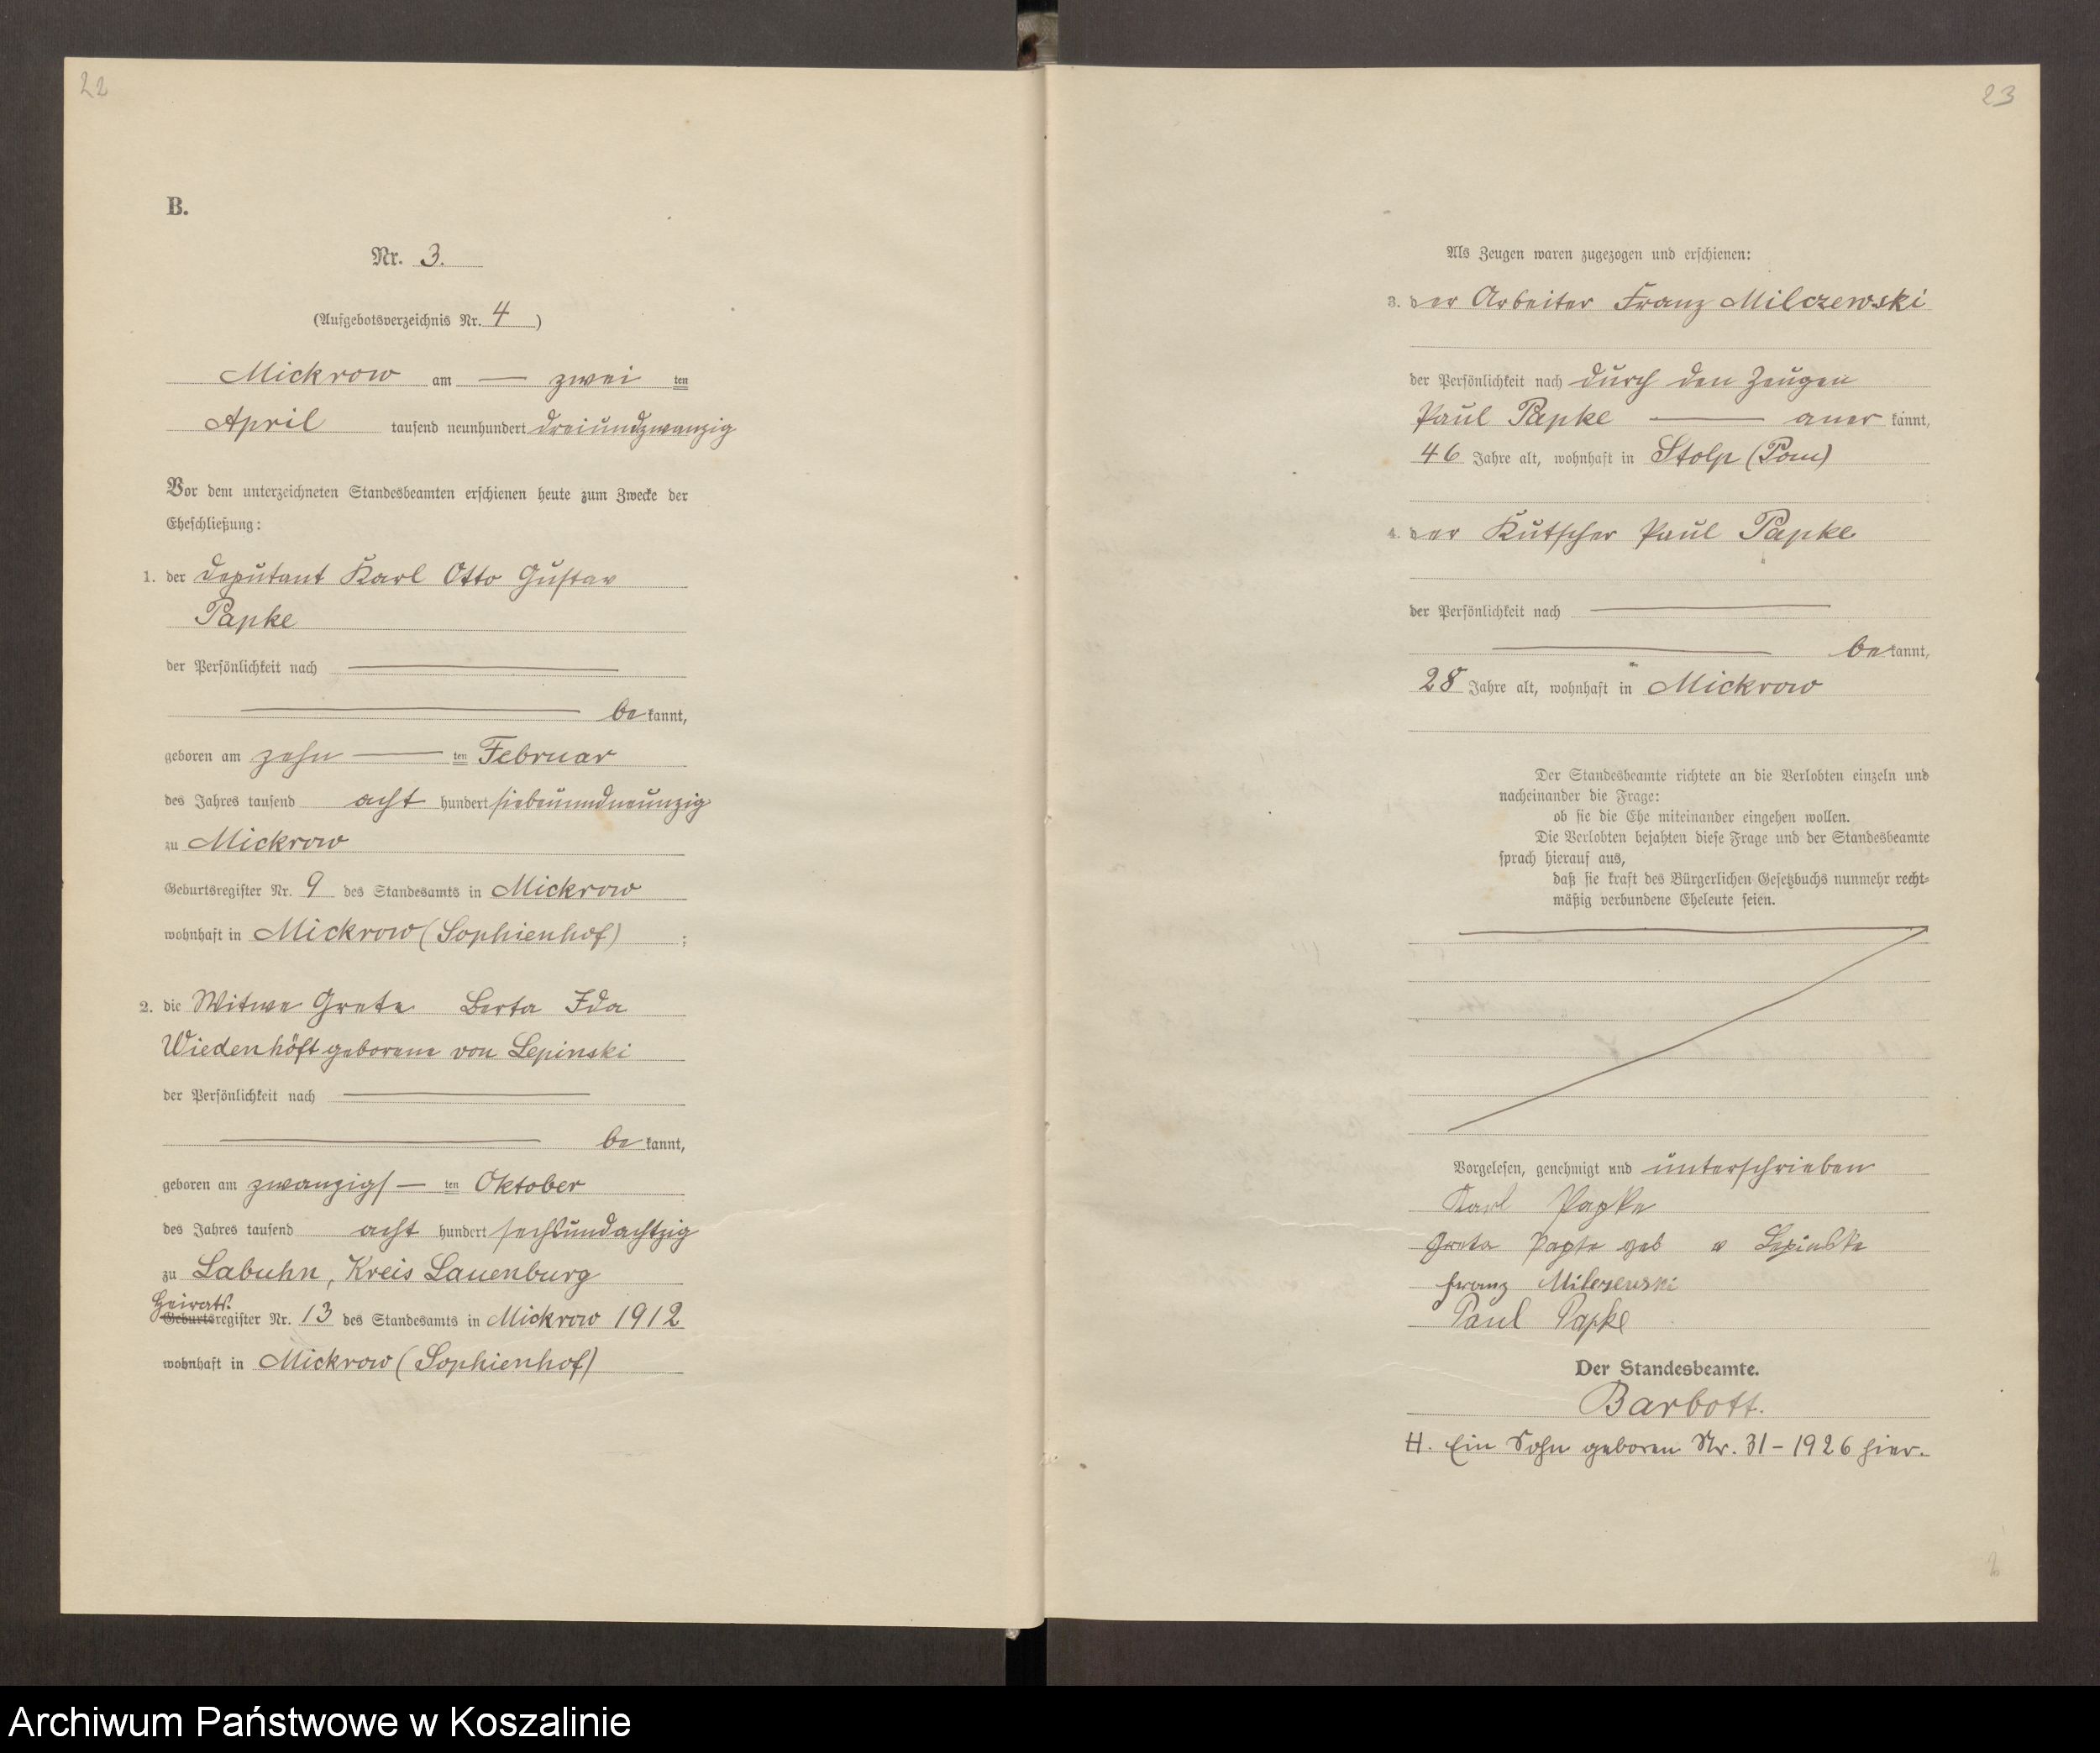 22
B.
Nr. 3.
(Aufgebotsverzeichnis Nr. 4)
Mickrow am — zwei ten
April tausend neunhundert dreiundzwanzig
Vor dem unterzeichneten Standesbeamten erschienen heute zum Zwecke der
Eheschließung:
1. der Deputant Karl Otto Gustav
Papke
der Persönlichkeit nach —
— bekannt,
geboren am zehn — ten Februar
des Jahres tausend acht hundert siebenundneunzig
zu Mickrow
Geburtsregister Nr. 9 des Standesamts in Mickrow
wohnhaft in Mickrow (Sophienhof) ;
2. die Witwe Grete Berta Ida
Wiedenhöft geborene von Lepinski
der Persönlichkeit nach —
— bekannt,
geboren am zwanzigs — ten Oktober
des Jahres tausend acht hundert sechsundachtzig
zu Labuhn, Kreis Lauenburg
Heirats-
Geburtsregister Nr. 13 des Standesamts in Mickrow 1912
wohnhaft in Mickrow (Sophienhof)
23
Als Zeugen waren zugezogen und erschienen:
3. der Arbeiter Franz Milczewski
der Persönlichkeit nach durch den Zeugen
Paul Papke — anerkannt,
46 Jahre alt, wohnhaft in Stolp (Pom)
4. der Kutscher Paul Papke
der Persönlichkeit nach —
— bekannt,
28 Jahre alt, wohnhaft in Mickrow
Der Standesbeamte richtete an die Verlobten einzeln und
nacheinander die Frage:
ob sie die Ehe miteinander eingehen wollen.
Die Verlobten bejahten diese Frage und der Standesbeamte
sprach hierauf aus,
daß sie kraft des Bürgerlichen Gesetzbuchs nunmehr recht-
mäßig verbundene Eheleute seien.
Vorgelesen, genehmigt und unterschrieben
Karl Papke
Greta Papke geb v Lepinske
Franz Milczewski
Paul Papke
Der Standesbeamte.
Barbott.
H. Ein Sohn geboren Nr. 31 – 1926 hier.
Archiwum Państwowe w Koszalinie